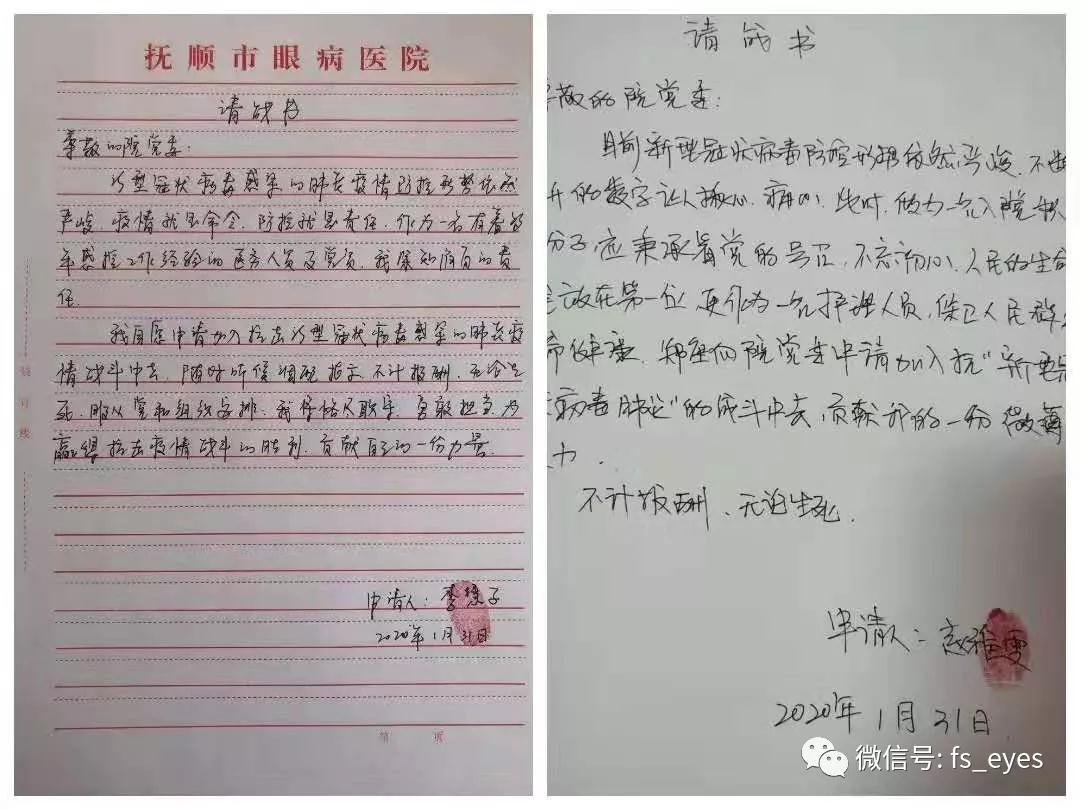 抚顺市眼病医院
请战书
尊敬的院党委：
新型冠状病毒感染的肺炎疫情防控形势依然
严峻，疫情就是命令，防控就是责任，作为一名有着多
年感控工作经验的医务人员及党员，我深知肩负的责
任。
我自愿申请加入抗击新型冠状病毒感染的肺炎疫
情战斗中去，随时听候调配指示，不计报酬，无论生
死，服从党和组织安排，我保恪尽职守，勇敢担当，为
赢得抗击疫情战斗的胜利，贡献自己的一份力量。
申请人：李 子
2020年1月31日
第 页
装 订 线
请战书
敬的院党委：
目前新型冠状病毒防控形势依然严峻，不断
升的数字让人揪心、痛心，此时，做为一名入党积
分子，应秉承着党的号召，不忘初心，人民的生命
放在第一位，更作为一名护理人员，保卫人民群
命健康，郑重向院党委申请加入抗“新型冠
病毒肺炎”的战斗中去，贡献我的一份微薄
力．
不计报酬、无论生死．
申请人：赵雅雯
2020年1月31日
微信号: fs_eyes